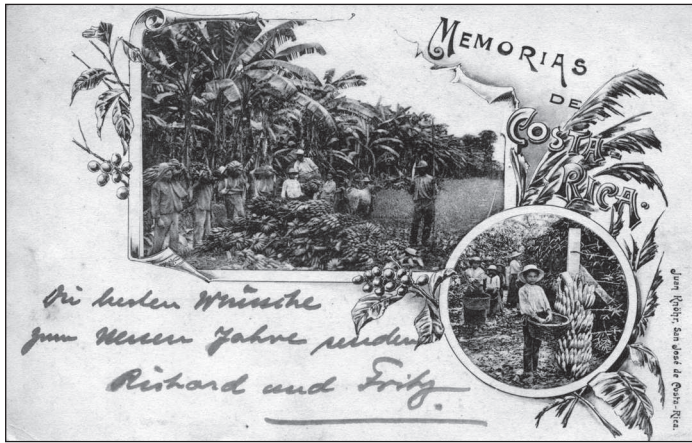 MEMORIAS
DE
COSTA
RICA.
Juan Knöhr, San José de Costa-Rica.
Die besten Wünsche
zum Neuen Jahre senden
Richard und Fritz.